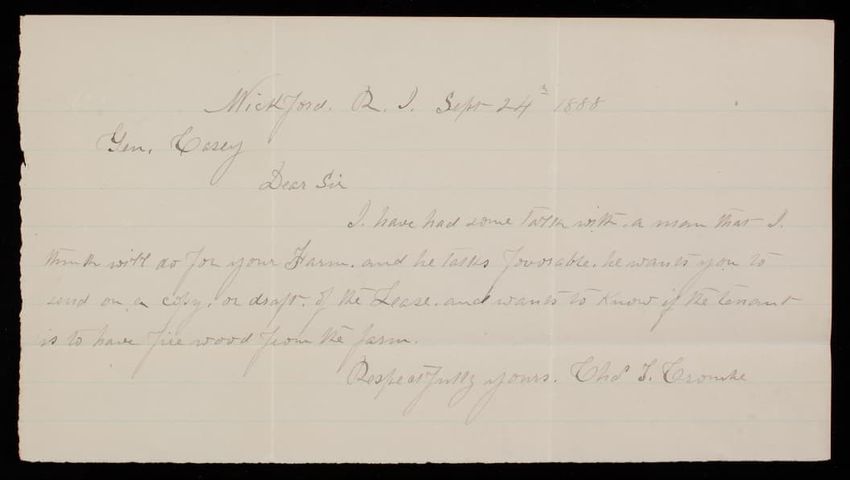 Wickford. R. I. Sept 24th 1888
Gen. Casey
Dear Sir
I. have had some talk with. a man that I.
think will do for your Farm. and he talks favorable. he wants you to
send on a copy. or draft. of the Lease. and wants to know if the tenant
is to have fire wood from the farm.
Respectfully yours. Chas T. Crombe